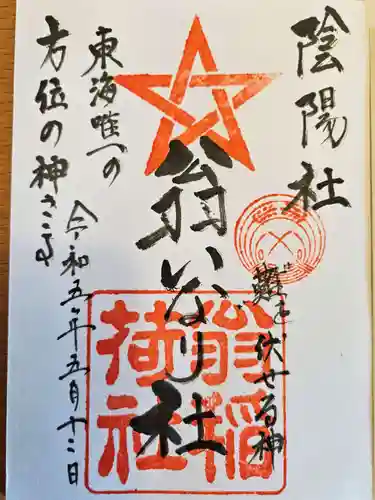 陰陽社
難を伏せる神
翁いなり社
翁稲荷社
東海唯一の
方位の神さま
令和五年五月十二日